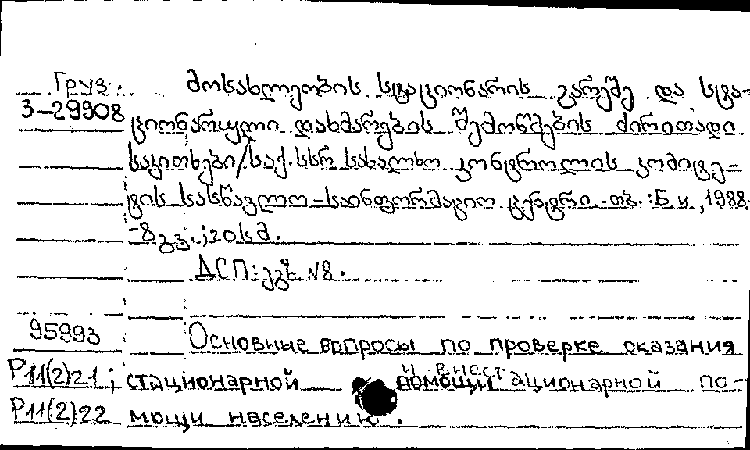 Груз. მოსახლეობის სტაციონარის გარეშე და სტა-
3-29908 ციონარული დახმარების შემოწმების ძირითადი
საკითხები/საქ. სსრ სახალხო კონტროლის კომიტე-
ტის სასწავლო-საინფორმაციო ცენტრი.-თბ.:Б.и.,1988.
-8 გვ.;20სმ.
ДСП: ეგზ. №8.
95993 Основные вопросы по проверке оказания
Р11(2)21; стационарной и внест
помощи ационарной по-
Р11(2)22 мощи населению.